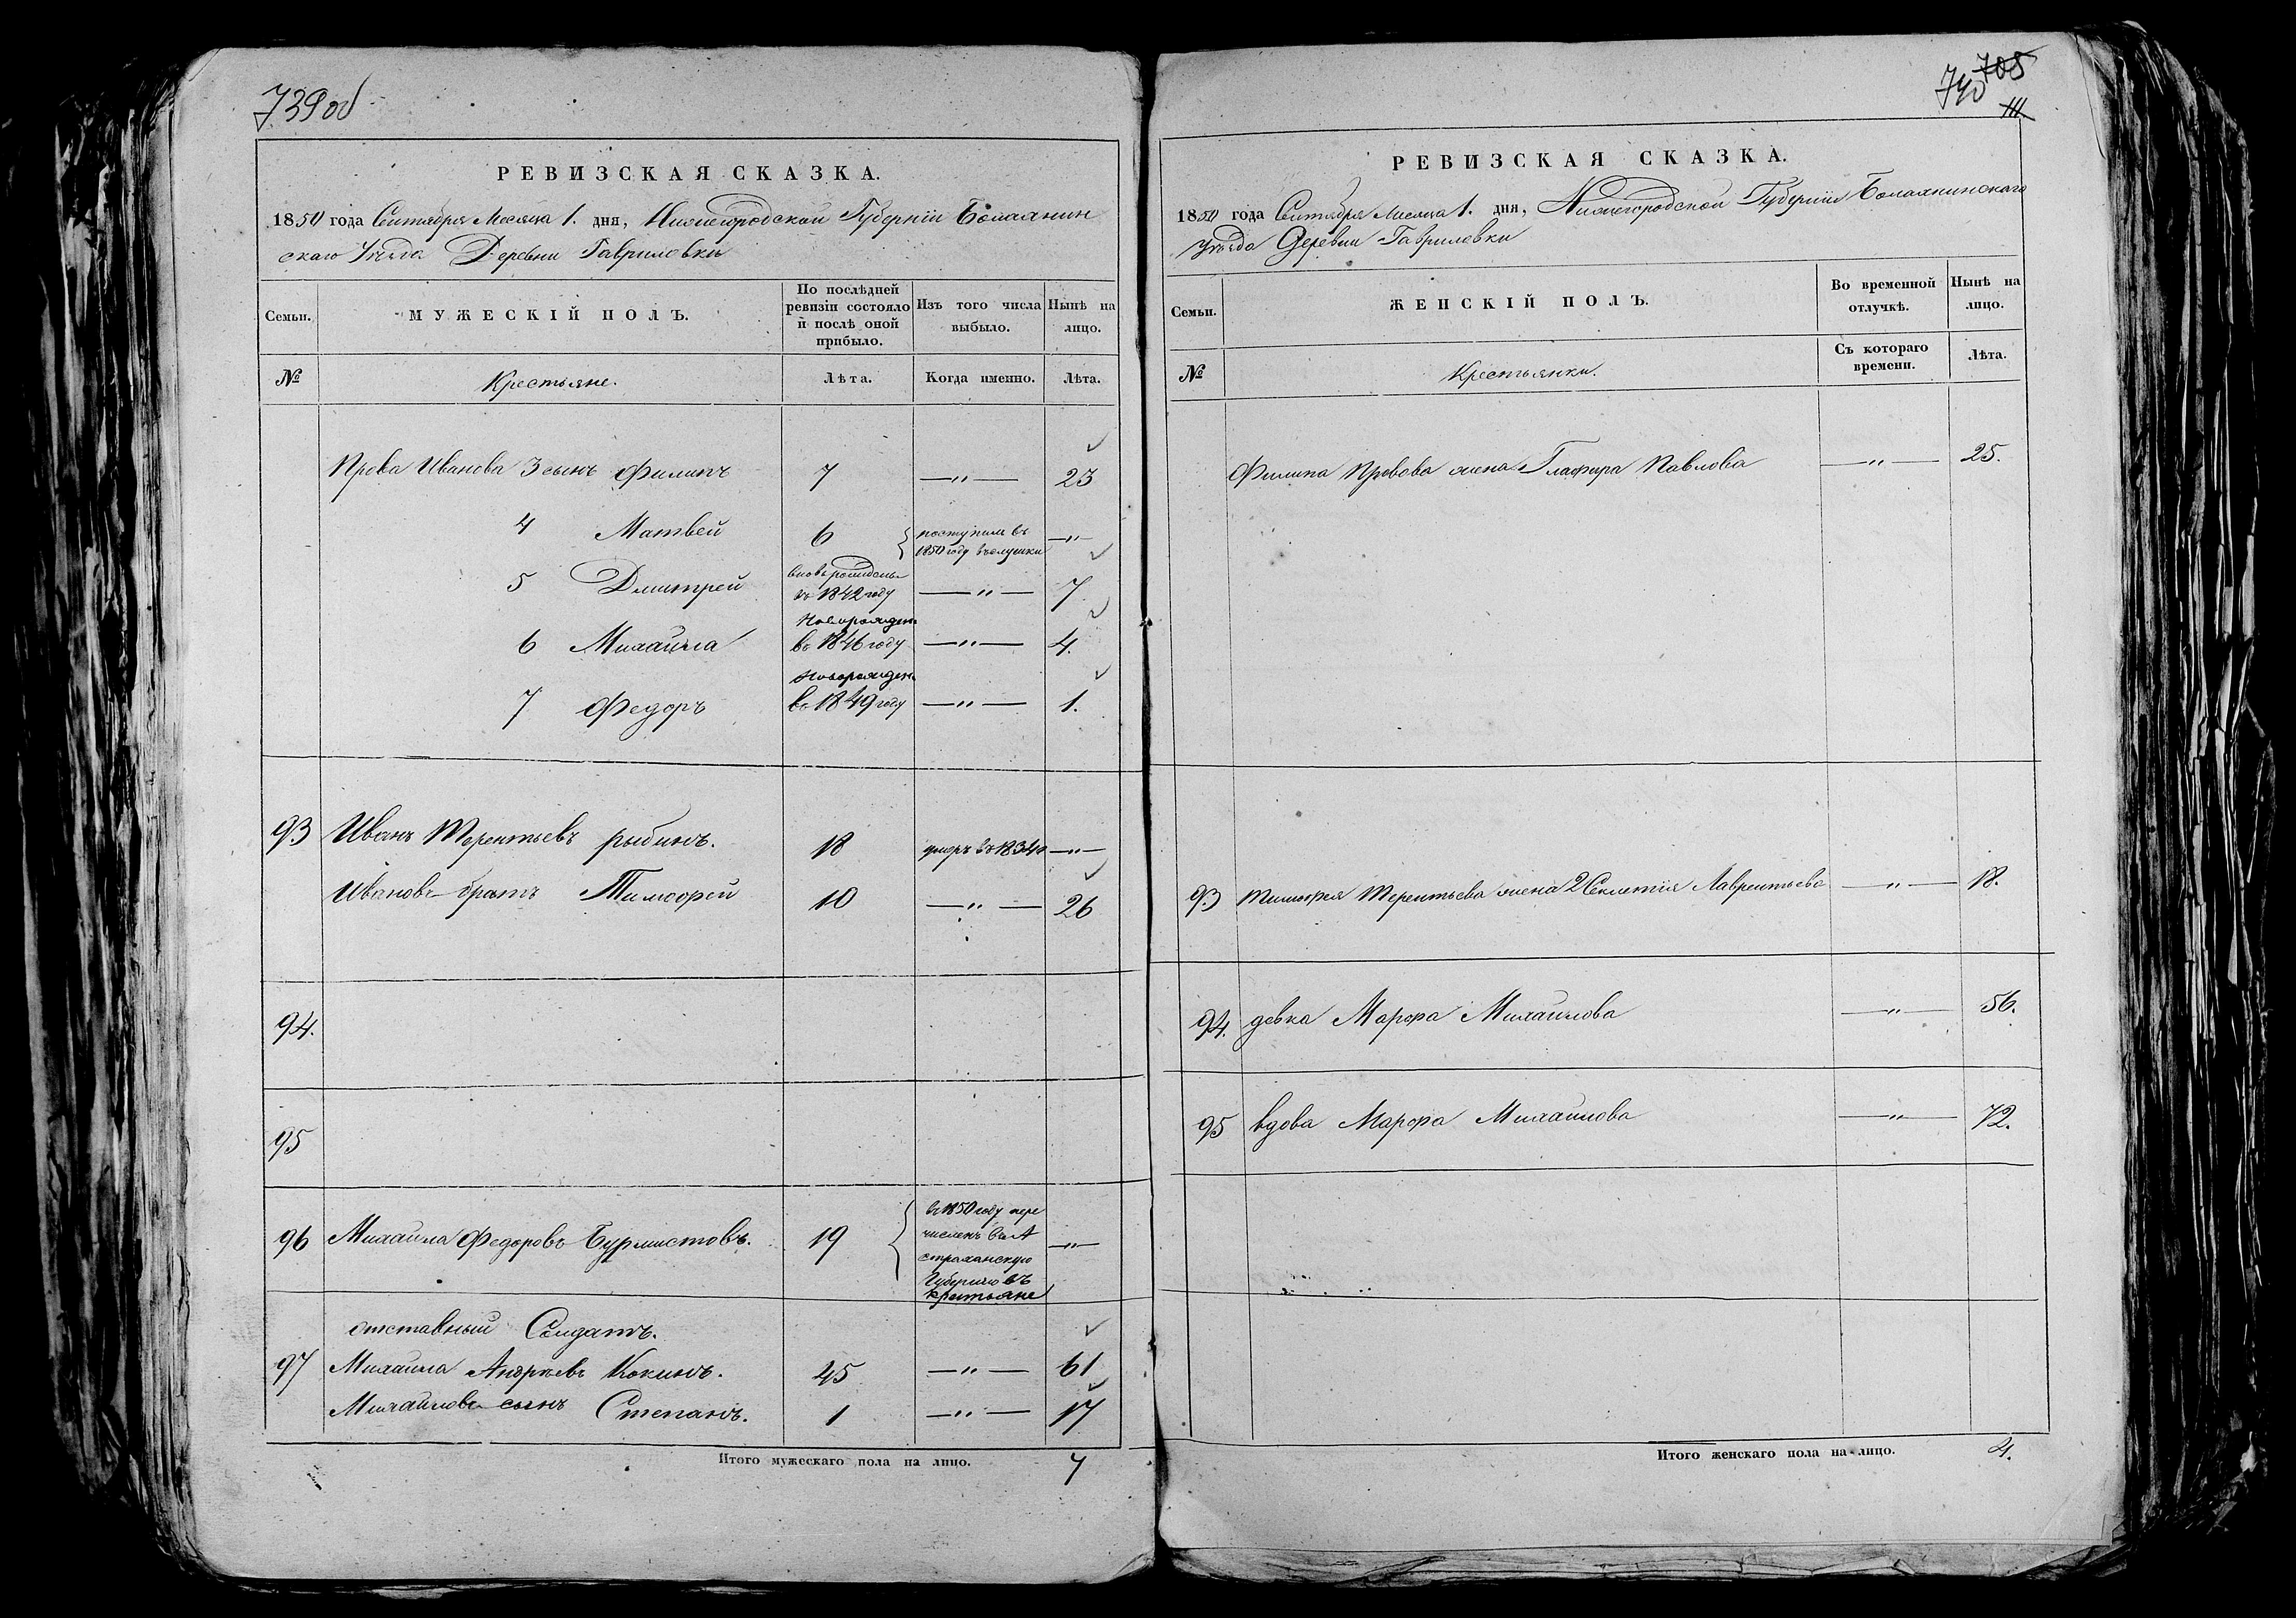 739об
РЕВИЗСКАЯ СКАЗКА.
1850 года Сентября Месяца 1. дня, Нижегородской Губерніи Балахнин
скаго Уѣзда Деревни Гавриловки
Семьи.
МУЖЕСКІЙ ПОЛЪ.
По послѣдней
ревизіи состояло
и послѣ оной
прибыло.
Изъ того числа
выбыло.
Нынѣ на
лицо.
№
Крестьяне.
Лѣта.
Когда именно.
Лѣта.
Прова Иванова 3 сынъ Филипъ 7 —"— 23
4 Матвей 6 поступилъ въ
1850 году —"—
5 Дмитрей вновь рожденъ
въ 1842 году —"— 7
6 Михайла Новорожден
въ 1846 году —"— 4.
7 Федоръ Новорожден
въ 1849 году —"— 1.
93 Иванъ Терентьевъ рыбинъ. 18 умеръ въ 1834 —"—
Ивановъ братъ Тимофей 10 —"— 26
94.
95
96 Михайла Федоровъ Бурмистовъ. 19 въ 1850 году пере
численъ въ А
страханскую
Губернію въ
крестьяне —"—
отставный Солдатъ.
97 Михайла Андреевъ Кокинъ. 45 —"— 61
Михайловъ сынъ Степанъ. 1 —"— 17
Итого мужескаго пола на лицо. 7
705
740
111
РЕВИЗСКАЯ СКАЗКА.
1850 года Сентября Месяца 1. дня, Нижегородской Губерніи Балахнинскаго
Уѣзда Деревни Гавриловки
Семьи.
ЖЕНСКІЙ ПОЛЪ.
Во временной
отлучкѣ.
Нынѣ на
лицо.
№
Крестьянки.
Съ котораго
времени.
Лѣта.
Филипа Провова жена Глафира Павлова —"— 25.
93 Тимофея Терентьева жена 2 Секлетія Лаврентьева —"— 18.
94. девка Марфа Михайлова —"— 56.
95 вдова Марфа Михайлова —"— 72.
Итого женскаго пола на-лицо. 4.